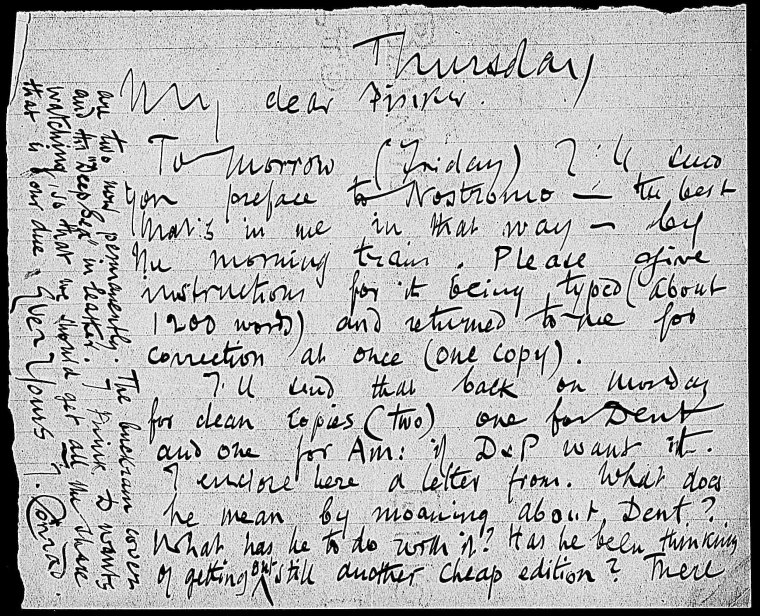 Thursday
My dear Pinker.
To Morrow (Friday) I'll send
you preface to Nostromo — the best
that's in me in that way — by
the morning train. Please give
instructions for it being typed (about
1200 words) and returned to me for
correction at once (one copy).
I'll send that back on Monday
for clean copies (two) one for Dent
and one for Am: if D&P want it.
I enclose here a letter from. What does
he mean by moaning about Dent?
What has he to do with it? Has he been thinking
of getting out still another cheap edition? There
are two now permanently. The buckram cover
and the "Deep Sea" in leather. I think D wants
watching so that we should get all the share
that is our due. Ever Yours J. Conrad.